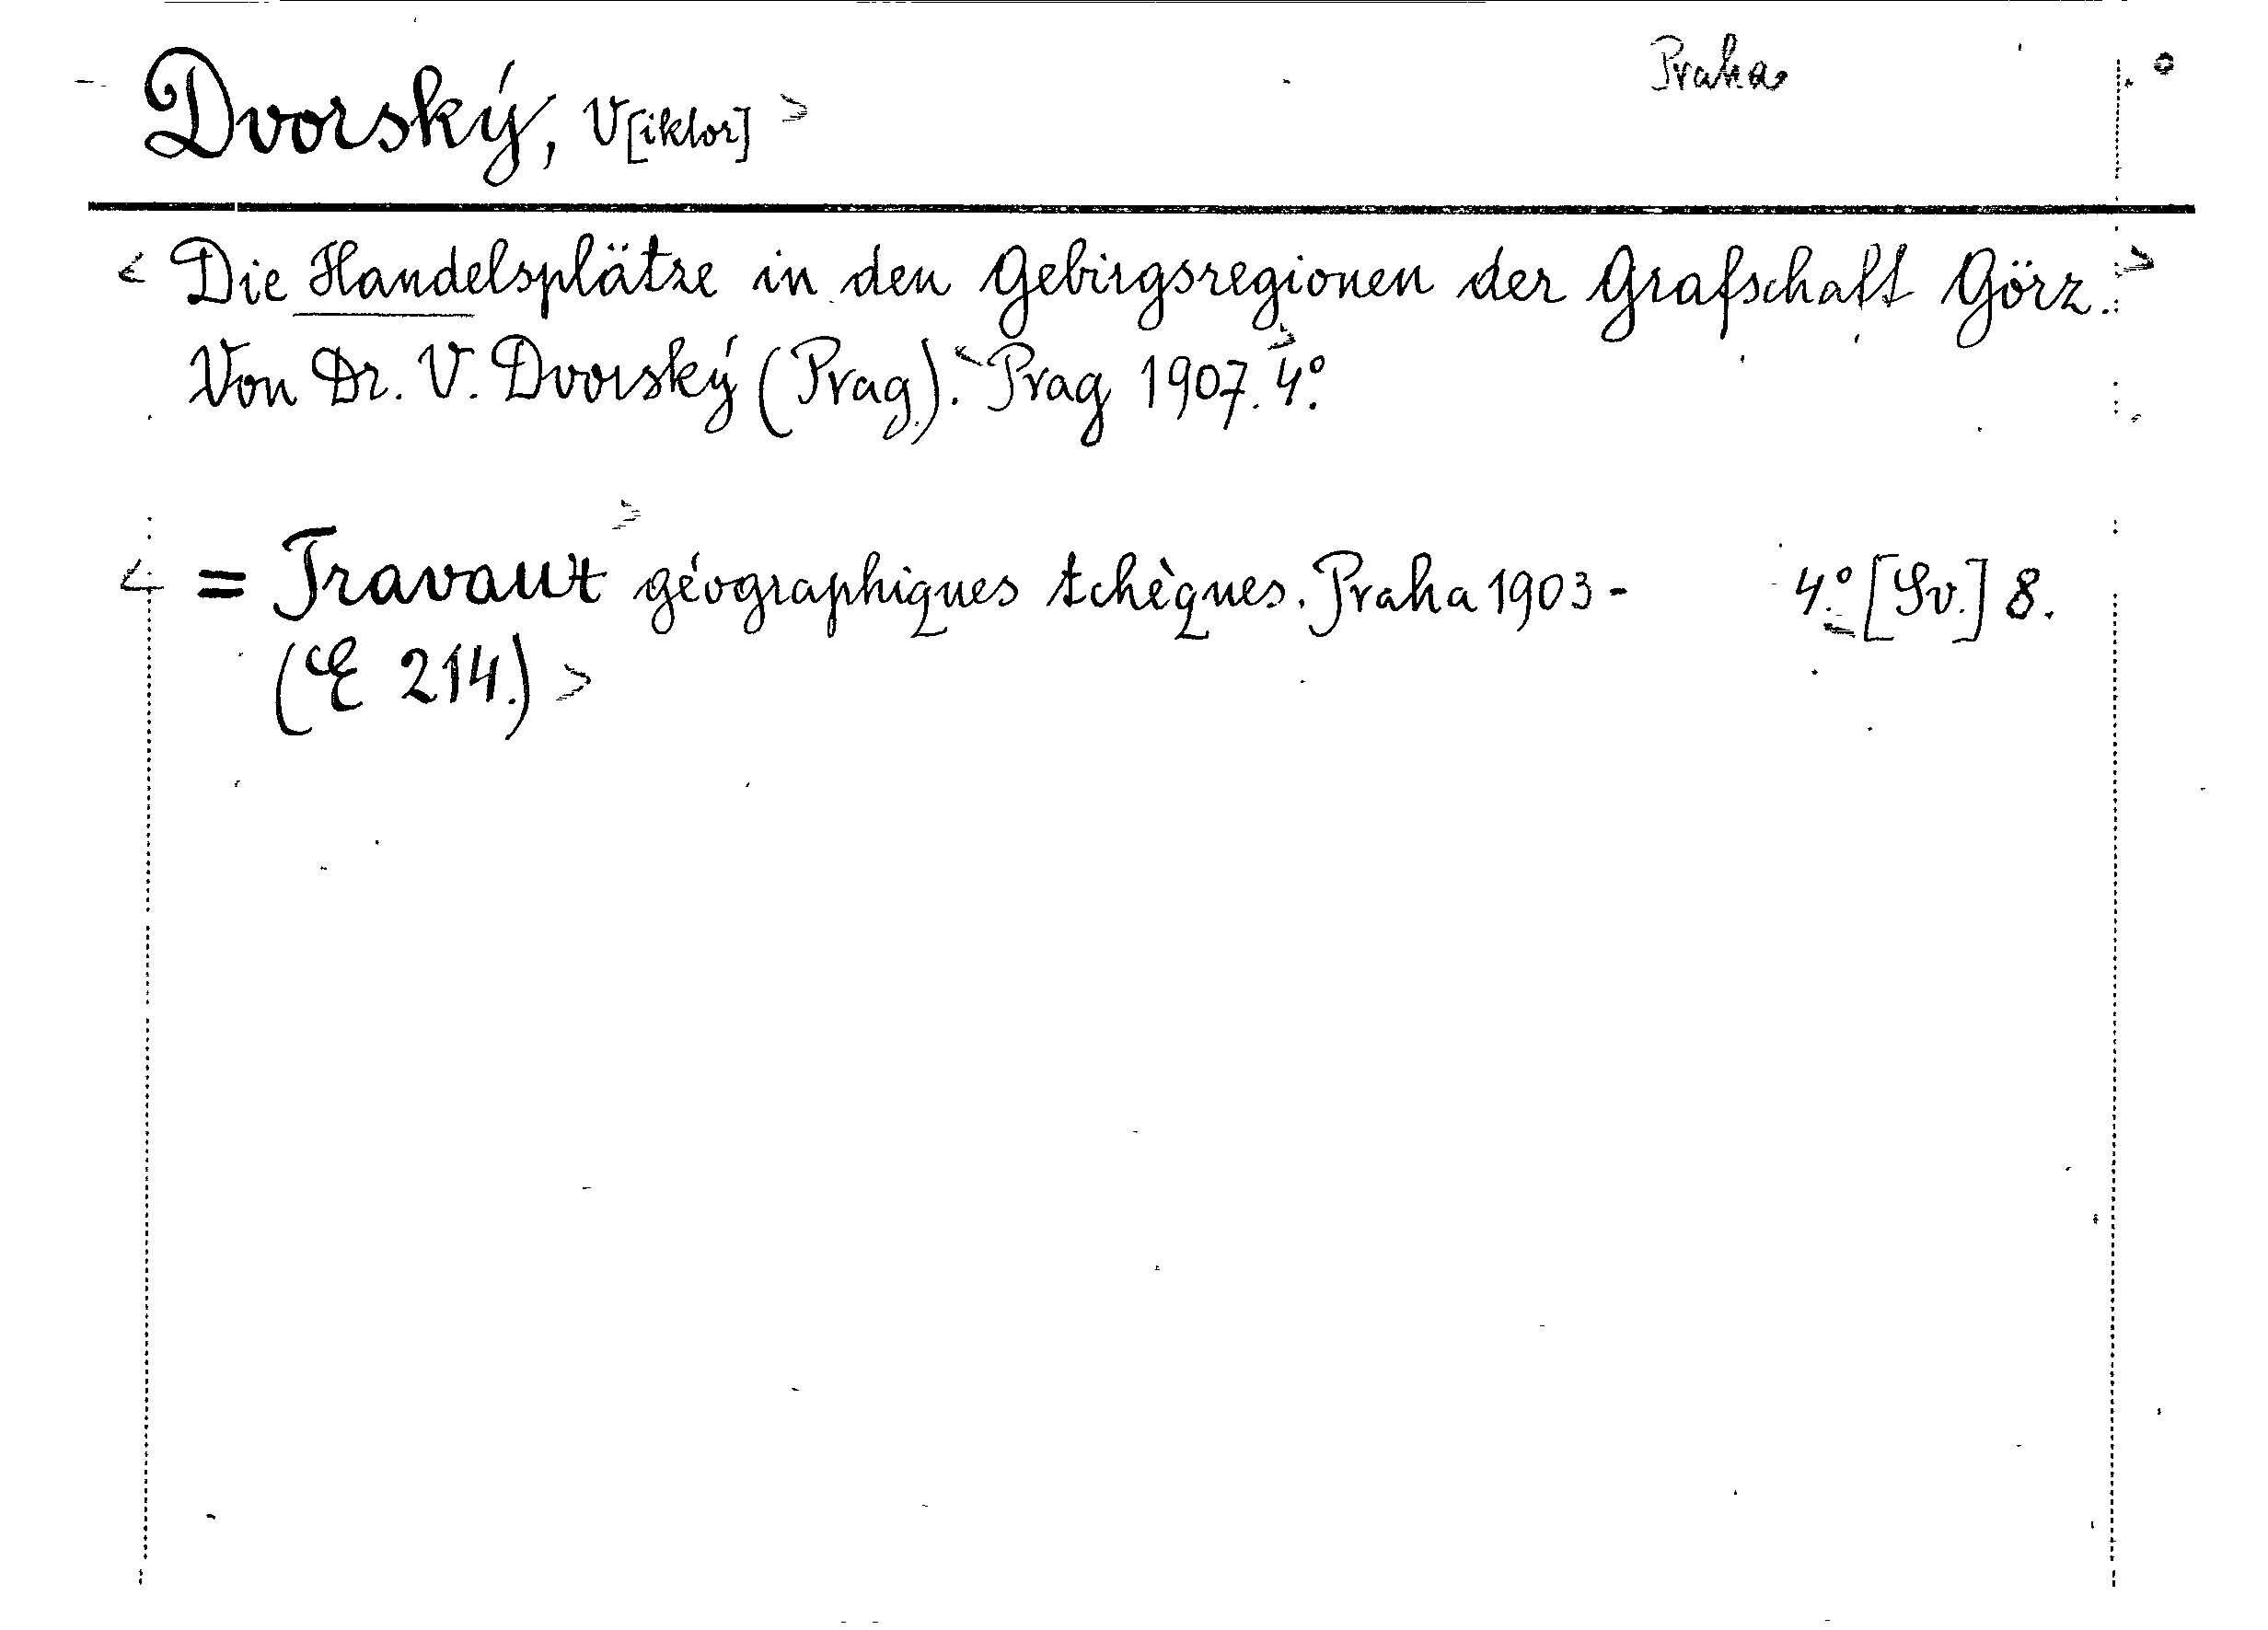 Praha
Dvorský, V[iktor] >
< Die Handelsplätze in den Gebirgsregionen der Grafschaft Görz. >
Von Dr. V. Dvorský (Prag). < Prag 1907. > 4°.
< = Travaux > géographiques tchèques. Praha 1903 - 4°. [Sv.] 8.
(E 214.) >